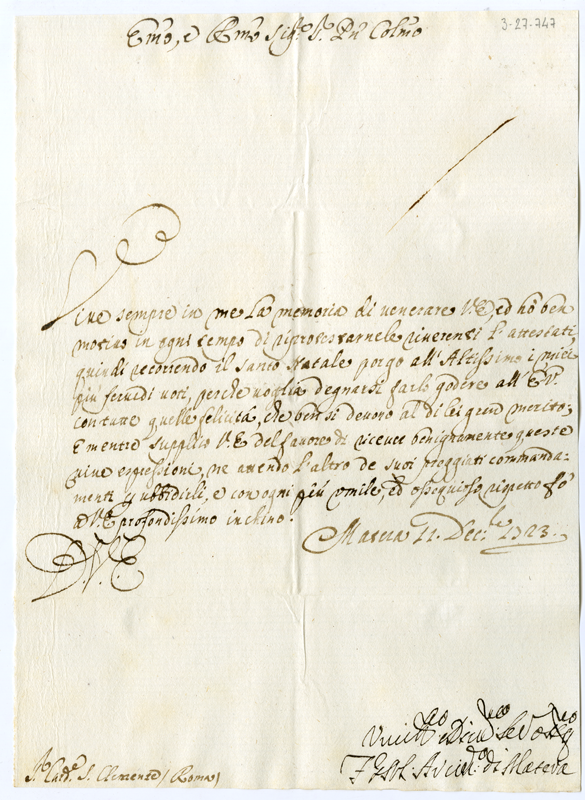 3-27.747
Emo, e Rmo Sig.r P.n Colmo
Vive sempre in me La memoria di venerare V.E ed hò ben
motivo in ogni tempo di riprotestarnele riverenti l'attestati,
quindi ricorrendo il Santo Natale porgo all'Altissimo i miei
più fervidi voti, perche voglia degnarsi farle godere all'E.V.
con tutte quelle felicità, che ben si devono al di lei gran merito:
E mentre supplico V.E del favore di ricevere benignamente queste
vive espressioni, ne attendo l'altro de suoi preggiati commanda-
menti p ubbidirli, e con ogni più umile, ed ossequioso rispetto fò
à V.E profondissimo inchino.
Matera 11. Dec.bre 1723.
D.V.E
S.r Card.e S. Clemente / Roma /
di Matera